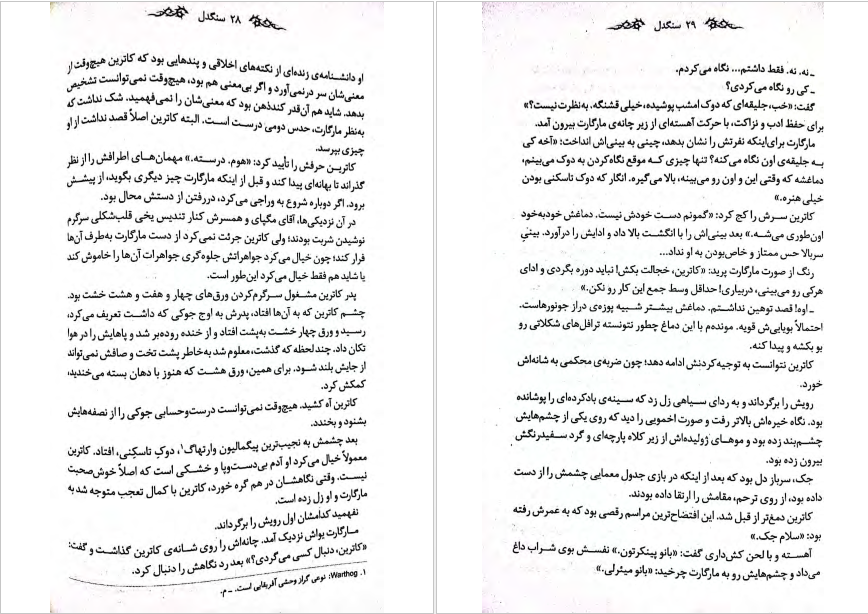 ۲۸ سنگدل
او دانشنامه‌ی زنده‌ای از نکته‌های اخلاقی و پندهایی بود که کاترین هیچ‌وقت از
معنی‌شان سر درنمی‌آورد و اگر بی‌معنی هم بود، هیچ‌وقت نمی‌توانست تشخیص
بدهد. شاید هم آن‌قدر کندذهن بود که معنی‌شان را نمی‌فهمید. شک نداشت که
به‌نظر مارگارت، حدس دومی درست است. البته کاترین اصلاً قصد نداشت از او
چیزی بپرسد.
کاترین حرفش را تأیید کرد: «هوم. درسته.» مهمان‌های اطرافش را از نظر
گذراند تا بهانه‌ای پیدا کند و قبل از اینکه مارگارت چیز دیگری بگوید، از پیشش
برود. اگر دوباره شروع به وراجی می‌کرد، دررفتن از دستش محال بود.
در آن نزدیکی‌ها، آقای مگپای و همسرش کنار تندیس یخی قلب‌شکلی سرگرم
نوشیدن شربت بودند؛ ولی کاترین جرئت نمی‌کرد از دست مارگارت به‌طرف آن‌ها
فرار کند؛ چون خیال می‌کرد جواهراتش جلوه‌گری جواهرات آن‌ها را خاموش کند
یا شاید هم فقط خیال می‌کرد این‌طور است.
پدر کاترین مشغول سرگرم‌کردن ورق‌های چهار و هفت و هشت خشت بود.
چشم کاترین که به آن‌ها افتاد، پدرش به اوج جوکی که داشت تعریف می‌کرد،
رسید و ورق چهار خشت به‌پشت افتاد و از خنده روده‌بر شد و پاهایش را در هوا
تکان داد. چند لحظه که گذشت، معلوم شد به‌خاطر پشت تخت و صافش نمی‌تواند
از جایش بلند شود. برای همین، ورق هشت که هنوز با دهان بسته می‌خندید،
کمکش کرد.
کاترین آه کشید. هیچ‌وقت نمی‌توانست درست‌وحسابی جوکی را از نصفه‌هایش
بشنود و بخندد.
بعد چشمش به نجیب‌ترین پیگمالیون وارتهاگ۱، دوکِ تاسکِنی، افتاد. کاترین
معمولاً خیال می‌کرد او آدم بی‌دست‌وپا و خشکی است که اصلاً خوش‌صحبت
نیست. وقتی نگاهشان در هم گره خورد، کاترین با کمال تعجب متوجه شد به
مارگارت و او زل زده است.
نفهمید کدامشان اول رویش را برگرداند.
مارگارت یواش نزدیک آمد. چانه‌اش را روی شانه‌ی کاترین گذاشت و گفت:
«کاترین، دنبال کسی می‌گردی؟» بعد رد نگاهش را دنبال کرد.
۱. Warthog: نوعی گراز وحشی آفریقایی است. ـ م.
۲۹ سنگدل
ـ نه. نه. فقط داشتم... نگاه می‌کردم.
ـ کی رو نگاه می‌کردی؟
گفت: «خب، جلیقه‌ای که دوک امشب پوشیده، خیلی قشنگه. به‌نظرت نیست؟»
برای حفظ ادب و نزاکت، با حرکت آهسته‌ای از زیر چانه‌ی مارگارت بیرون آمد.
مارگارت برای‌اینکه نفرتش را نشان بدهد، چینی به بینی‌اش انداخت: «آخه کی
به جلیقه‌ی اون نگاه می‌کنه؟ تنها چیزی که موقع نگاه‌کردن به دوک می‌بینم،
دماغشه که وقتی این و اون رو می‌بینه، بالا می‌گیره. انگار که دوک تاسکنی بودن
خیلی هنره.»
کاترین سرش را کج کرد: «گمونم دست خودش نیست. دماغش خودبه‌خود
اون‌طوری می‌شه.» بعد بینی‌اش را با انگشت بالا داد و ادایش را درآورد. بینیِ
سربالا حس ممتاز و خاص‌بودن به او نداد...
رنگ از صورت مارگارت پرید: «کاترین، خجالت بکش! نباید دوره بگردی و ادای
هرکی رو می‌بینی، دربیاری! حداقل وسط جمع این کار رو نکن.»
ـ اوه! قصد توهین نداشتم. دماغش بیشتر شبیه پوزه‌ی دراز جونورهاست.
احتمالاً بویایی‌ش قویه. مونده‌م با این دماغ چطور نتونسته ترافل‌های شکلاتی رو
بو بکشه و پیدا کنه.
کاترین نتوانست به توجیه‌کردنش ادامه دهد؛ چون ضربه‌ی محکمی به شانه‌اش
خورد.
رویش را برگرداند و به ردای سیاهی زل زد که سینه‌ی بادکرده‌ای را پوشانده
بود. نگاه خیره‌اش بالاتر رفت و صورت اخمویی را دید که روی یکی از چشم‌هایش
چشم‌بند زده بود و موهای ژولیده‌اش از زیر کلاه پارچه‌ای و گرد سفیدرنگش
بیرون زده بود.
جک، سرباز دل بود که بعد از اینکه در بازی جدول معمایی چشمش را از دست
داده بود، از روی ترحم، مقامش را ارتقا داده بودند.
کاترین دمغ‌تر از قبل شد. این افتضاح‌ترین مراسم رقصی بود که به عمرش رفته
بود: «سلام جک.»
آهسته و با لحن کش‌داری گفت: «بانو پینکرتون.» نفسش بوی شراب داغ
می‌داد و چشم‌هایش رو به مارگارت چرخید: «بانو میئرلی.»